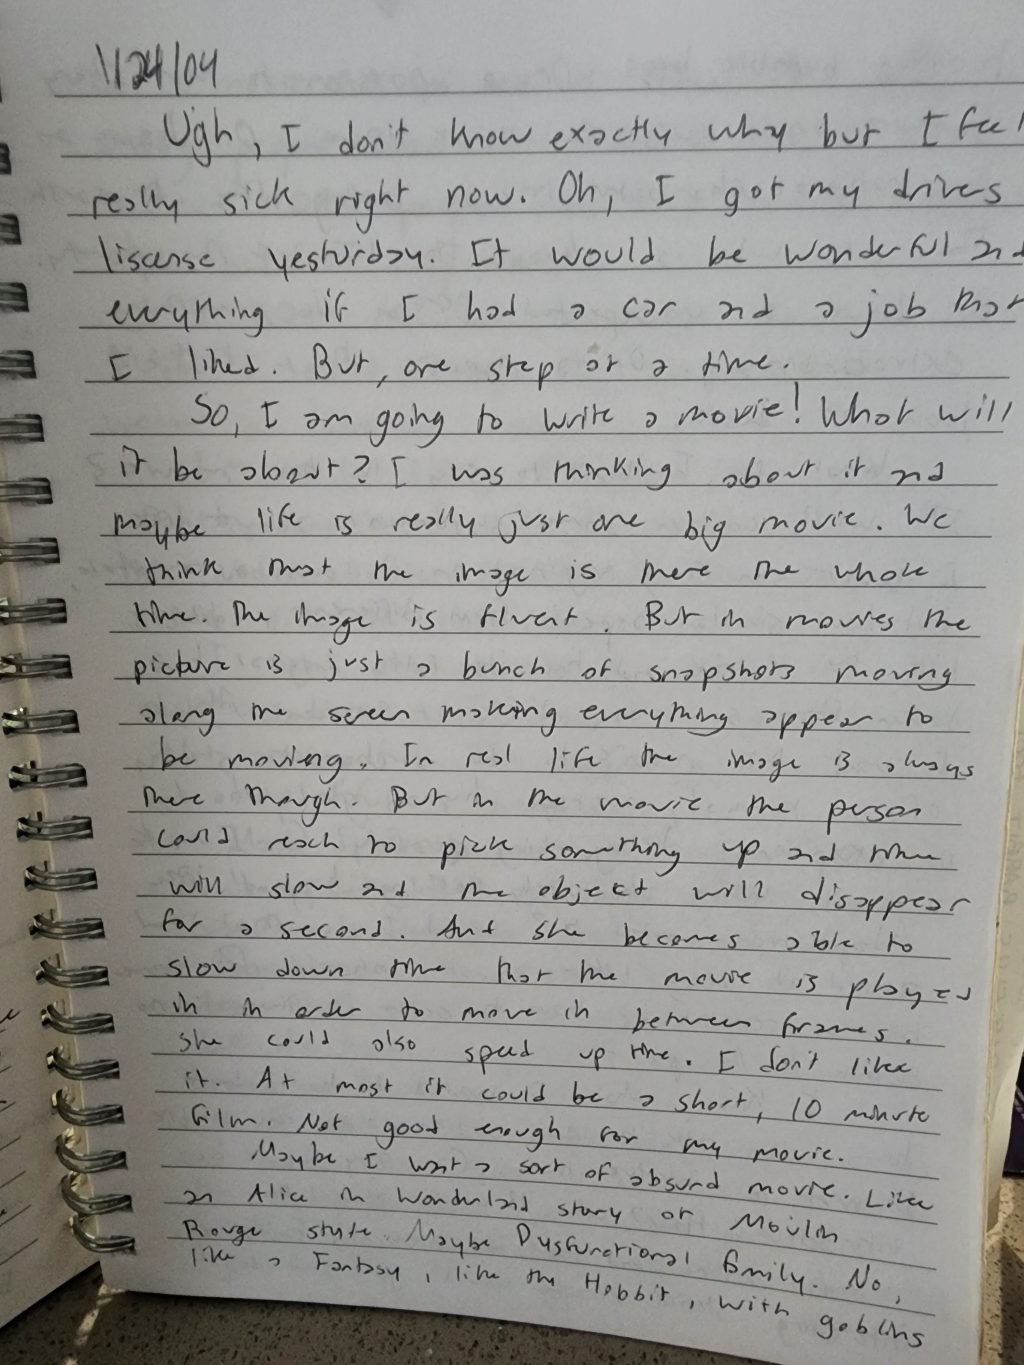 1/24/04
Ugh, I don't know exactly why but I feel
really sick right now. Oh, I got my drivers
liscense yesturday. It would be wonderful and
everything if I had a car and a job that
I liked. But, one step at a time.
So, I am going to write a movie! What will
it be about? I was thinking about it and
maybe life is really just one big movie. We
think that the image is there the whole
time. The image is fluent. But in movies the
picture is just a bunch of snapshots moving
along the screen making everything appear to
be moving. In real life the image is always
there though. But in the movie the person
could reach to pick something up and time
will slow and the object will disappear
for a second. And she becomes able to
slow down time that the movie is played
in in order to move in between frames.
She could also speed up time. I don't like
it. At most it could be a short, 10 minute
film. Not good enough for my movie.
Maybe I want a sort of absurd movie. Like
an Alice in Wonderland story or Moulin
Rouge style. Maybe Dysfunctional family. No,
like a Fantasy, like the Hobbit, with goblins